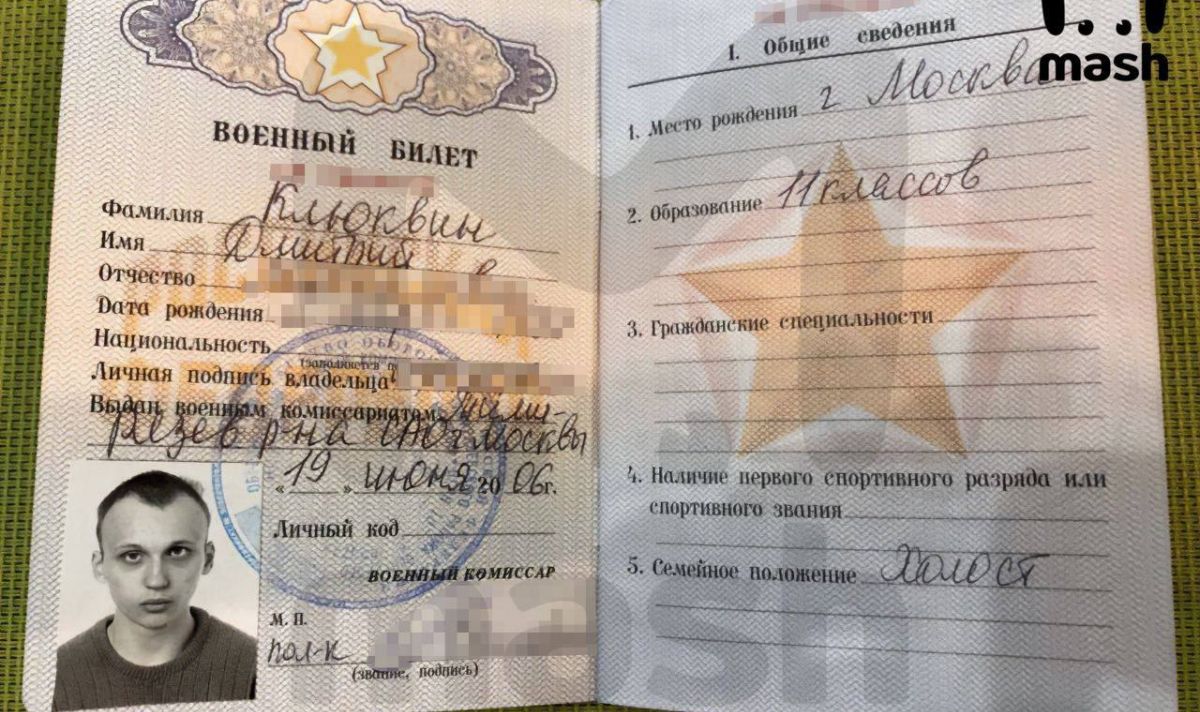 ВОЕННЫЙ БИЛЕТ
Фамилия Клюквин
Имя Дмитрий
Отчество
Дата рождения
Национальность
(заполняется
Личная подпись владельца
Выдан военным комиссариатом Тими-
рязев р-на САО г Москвы
«19» июня 2006г.
Личный код
ВОЕННЫЙ КОМИССАР
М. П.
пол-к
(звание, подпись)
I. Общие сведения
mash
1. Место рождения г Москва
2. Образование 11 классов
3. Гражданские специальности
4. Наличие первого спортивного разряда или
спортивного звания
5. Семейное положение Холост
mash